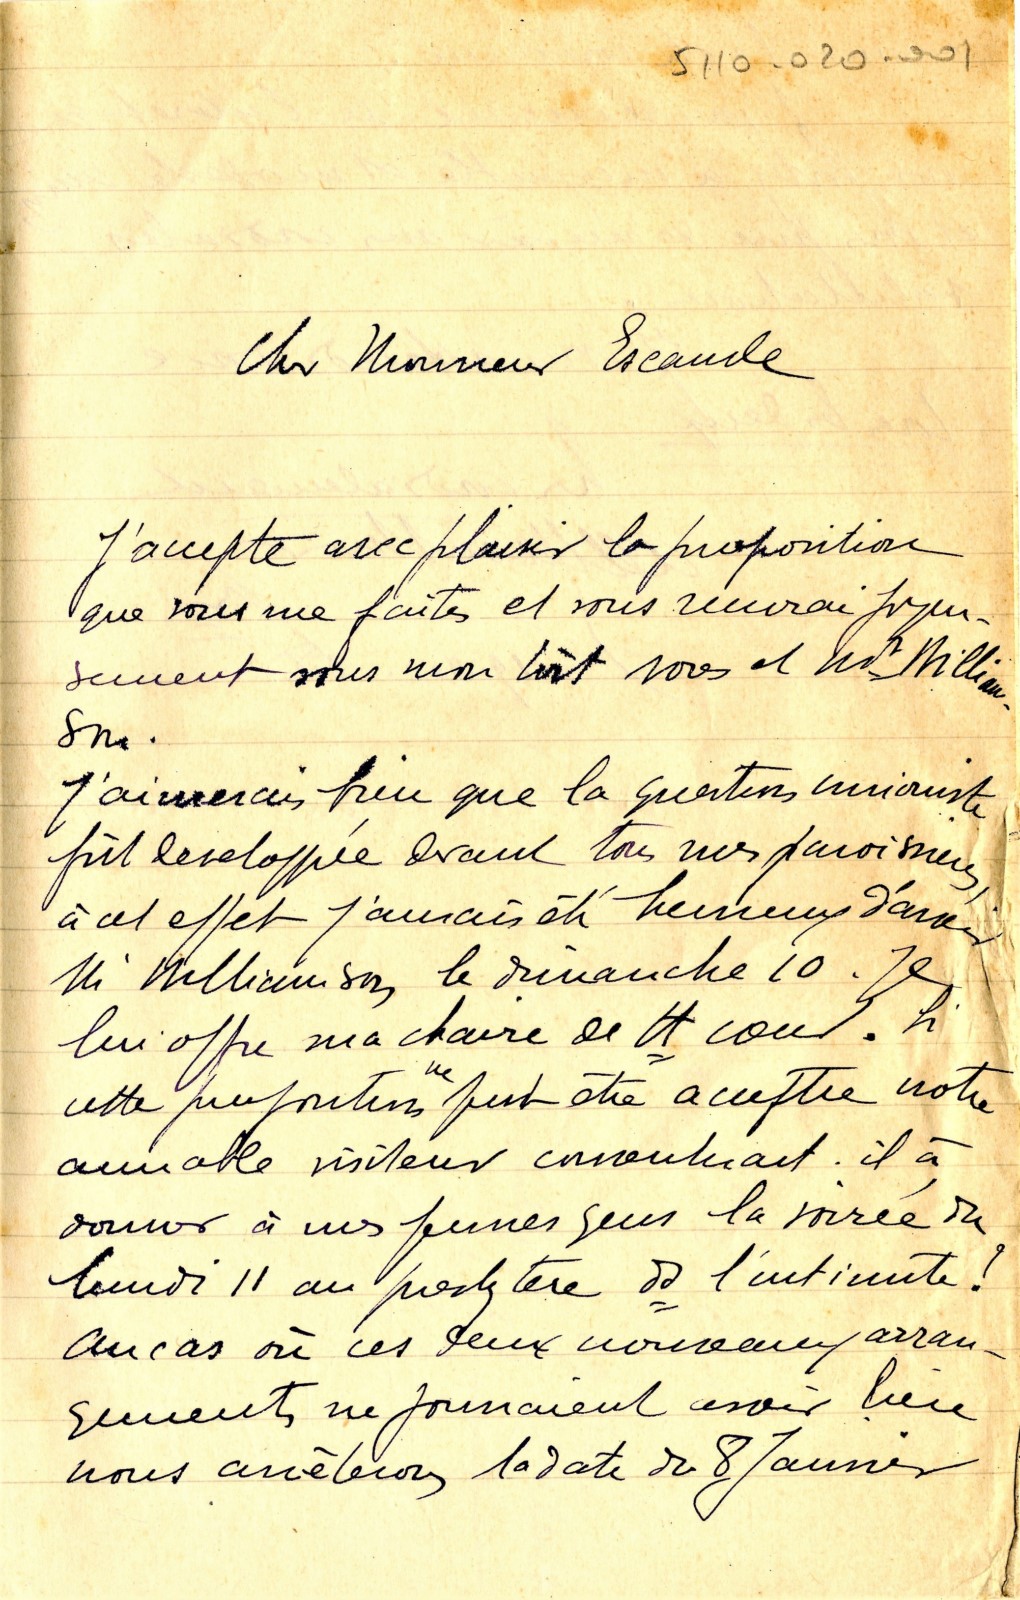 Cher Monsieur Escande
J'accepte avec plaisir la proposition
que vous me faites et vous recevrai joyeu-
sement sous mon toit vous et Mr William-
son.
J'aimerais bien que la question unioniste
fût developpée devant tous mes paroissiens,
à cet effet j'aurais été heureux d'avoir
Mr Williamson le dimanche 10. Je
lui offre ma chaire de tt coeur. Si
cette proposition ne peut être acceptée notre
aimable visiteur consentirait-il à
donner à mes jeunes gens la soirée du
lundi 11 au presbytère ds l'intimité?
Au cas où ces deux nouveaux arran-
gements ne pourraient avoir lieu
nous arrêterons la date du 8 Janvier